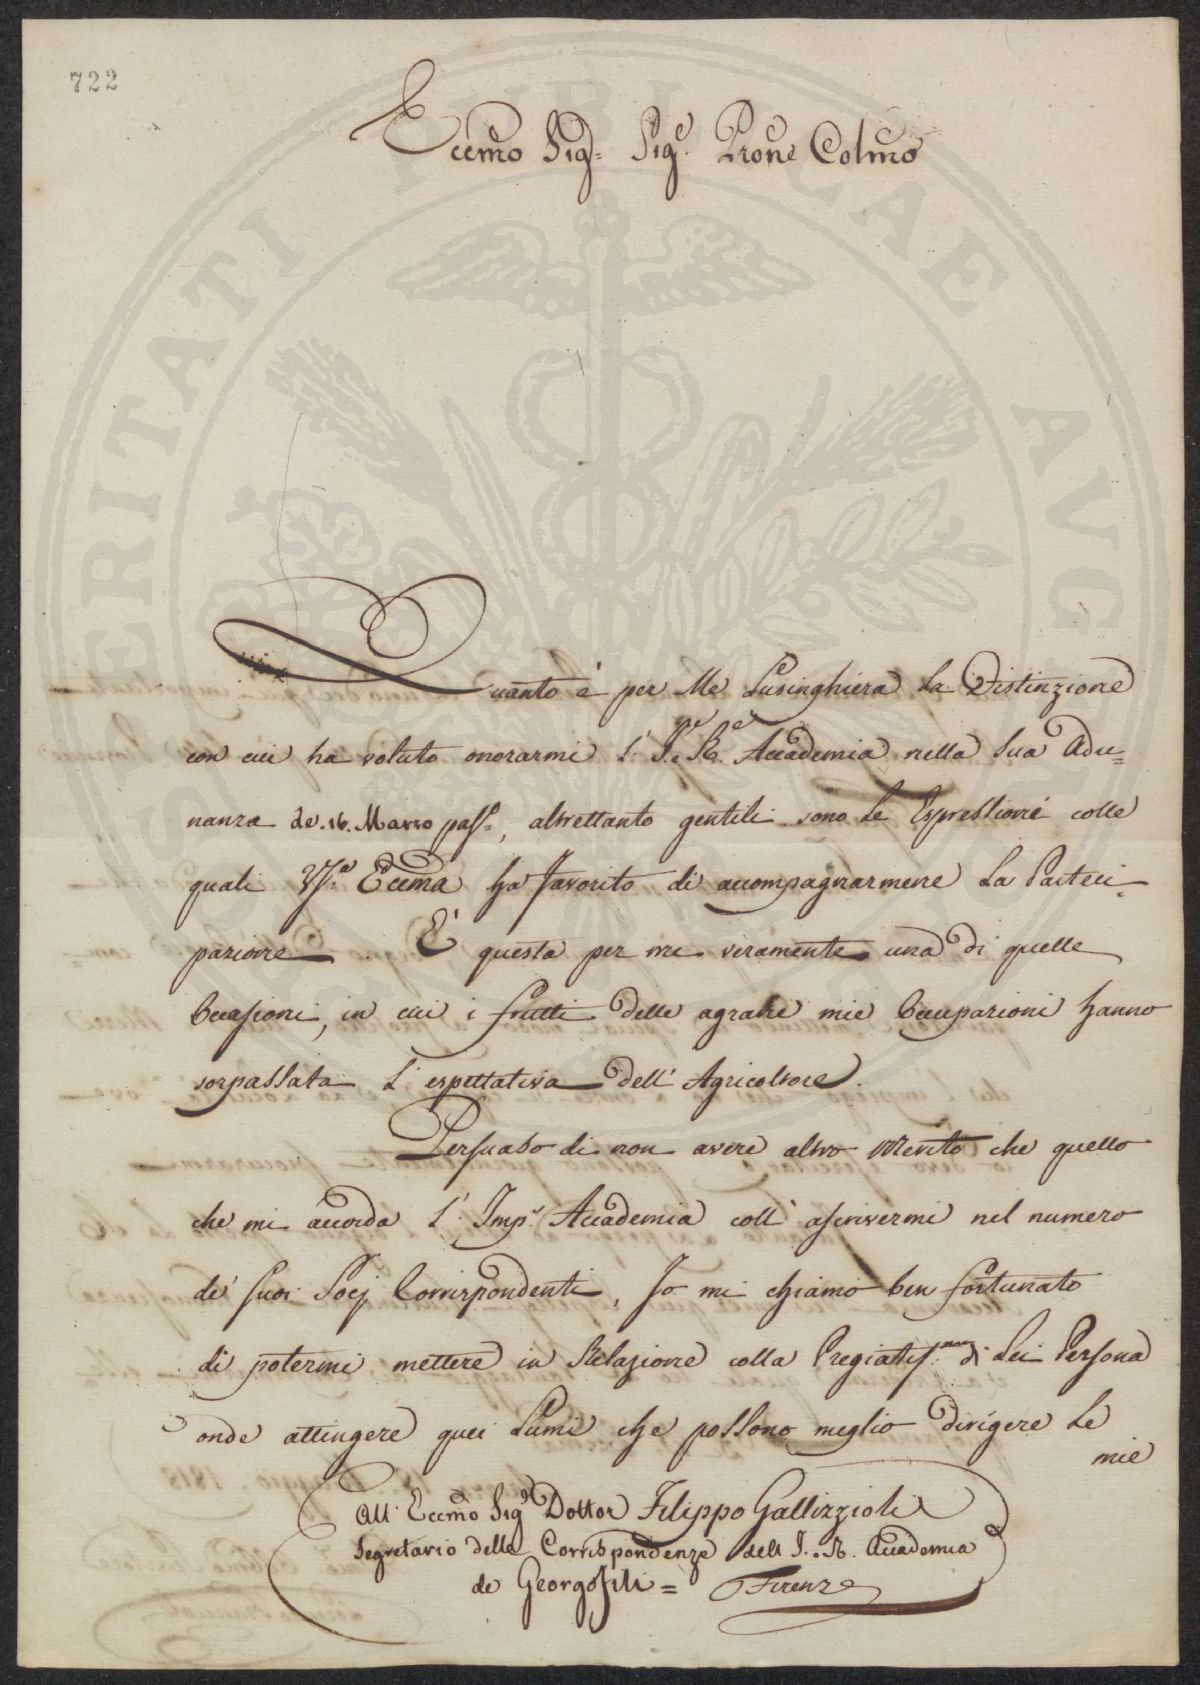 722
Eccmo Sig.re Sig.e Prone Colmo
Quanto è per Me Lusinghiera La Distinzione
con cui ha voluto onorarmi l' I.e R.e Accademia nella Sua Adu=
nanza de. 16. Marzo pass.o, altrettanto gentili sono Le Espressioni colle
quali V.S.a Eccma ha favorito di accompagnarmene La Parteci=
pazione. È questa per me veramente una di quelle
Occasioni, in cui i frutti delle agrarie mie Occupazioni hanno
sorpassata L'espettativa dell' Agricoltore.
Persuaso di non avere altro Merito che quello
che mi accorda l' Imp.e Accademia coll' ascrivermi nel numero
de' suoi Socj Corrispondenti, Io mi chiamo ben fortunato
di potermi mettere in Relazione colla Pregiatis.ma di Lei Persona
onde attingere quei Lumi che possono meglio dirigere Le
mie
All' Eccmo Sig.e Dottor Filippo Gallizzioli
Segretario delle Corrispondenze dell I. R. Accademia
de Georgofili = Firenze
VERITATI PVBLICAE AVG